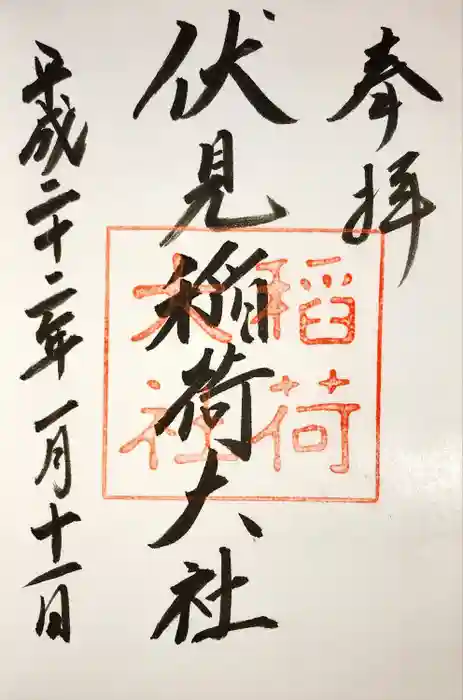 奉拝
伏見稲荷大社
稲荷
大社
平成二十二年一月十一日